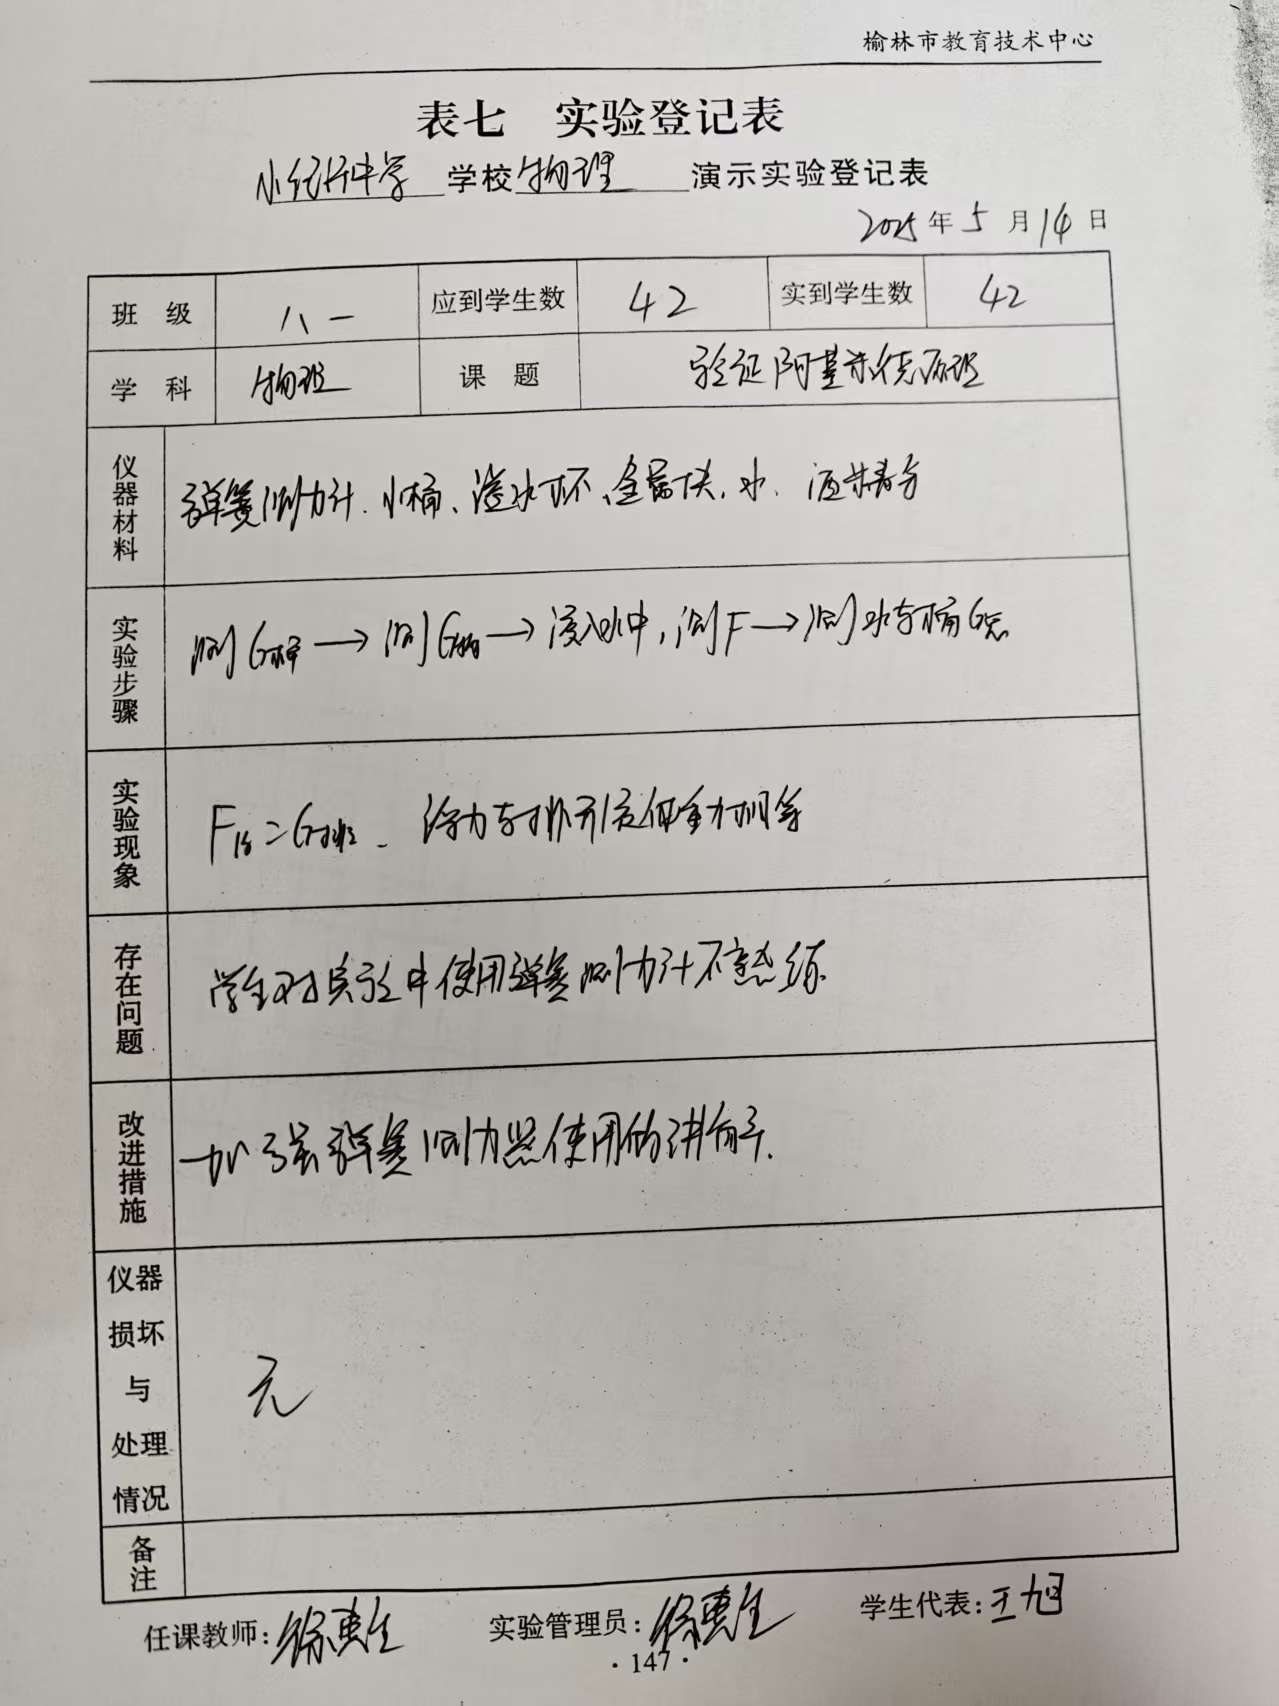 榆林市教育技术中心
表七 实验登记表
小纪汗中学 学校 物理 演示实验登记表
2025年5月14日
班级 八一 应到学生数 42 实到学生数 42
学科 物理 课题 验证阿基米德原理
仪器材料 弹簧测力计、小桶、溢水杯、金属块、水、
实验步骤 测G桶→测G物→浸入水中,测F→测水与桶G总
实验现象 F浮=G排. 浮力与排开液体重力相等
存在问题 学生对实验中使用弹簧测力计不熟练.
改进措施 加强弹簧测力器使用的讲解.
仪器损坏与处理情况 无
备注
任课教师: 实验管理员: 学生代表:王旭
·147·